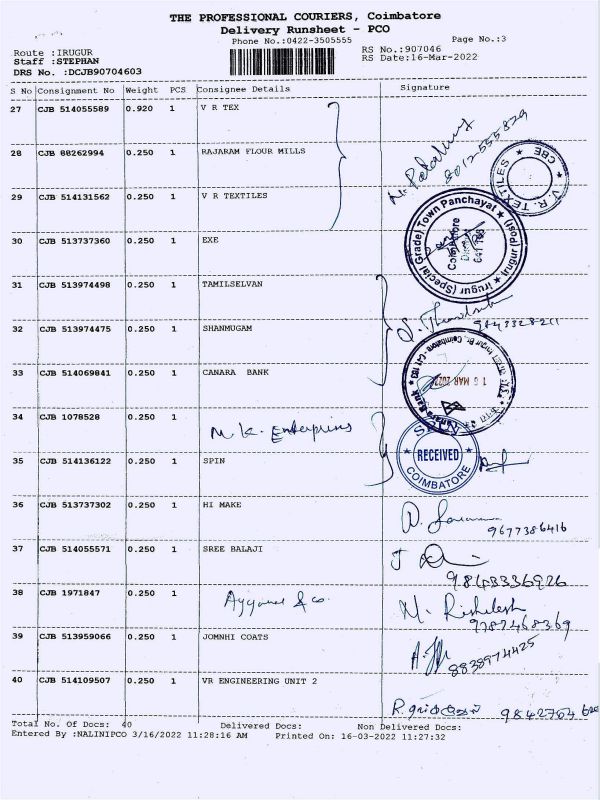 THE PROFESSIONAL COURIERS, Coimbatore
Delivery Runsheet - PCO
Phone No.:0422-3505555
Page No.:3
Route :IRUGUR
RS No.:907046
Staff :STEPHAN
RS Date:16-Mar-2022
DRS No. :DCJB90704603
S No Consignment No Weight PCS Consignee Details Signature
27 CJB 514055589 0.920 1 V R TEX
8012-555829
28 CJB 88262994 0.250 1 RAJARAM FLOUR MILLS
V.R. TEXTILES ★ CBE ★
29 CJB 514131562 0.250 1 V R TEXTILES
Irugur (Special Grade) Town Panchayat ★ Irugur (Post) ★
Coimbatore
30 CJB 513737360 0.250 1 EXE
31 CJB 513974498 0.250 1 TAMILSELVAN
9843328211
32 CJB 513974475 0.250 1 SHANMUGAM
33 CJB 514069841 0.250 1 CANARA BANK
Canara Bank
16 MAR 2022
34 CJB 1078528 0.250 1 M.K. Enterprises
35 CJB 514136122 0.250 1 SPIN
SPIN
RECEIVED
COIMBATORE
36 CJB 513737302 0.250 1 HI MAKE
9677386416
37 CJB 514055571 0.250 1 SREE BALAJI
9843336926
38 CJB 1971847 0.250 1 & co.
M. Rishilesh
9787468369
39 CJB 513959066 0.250 1 JOMNHI COATS
8838974425
40 CJB 514109507 0.250 1 VR ENGINEERING UNIT 2
Total No. Of Docs: 40 Delivered Docs: Non Delivered Docs:
Entered By :NALINIPCO 3/16/2022 11:28:16 AM Printed On: 16-03-2022 11:27:32